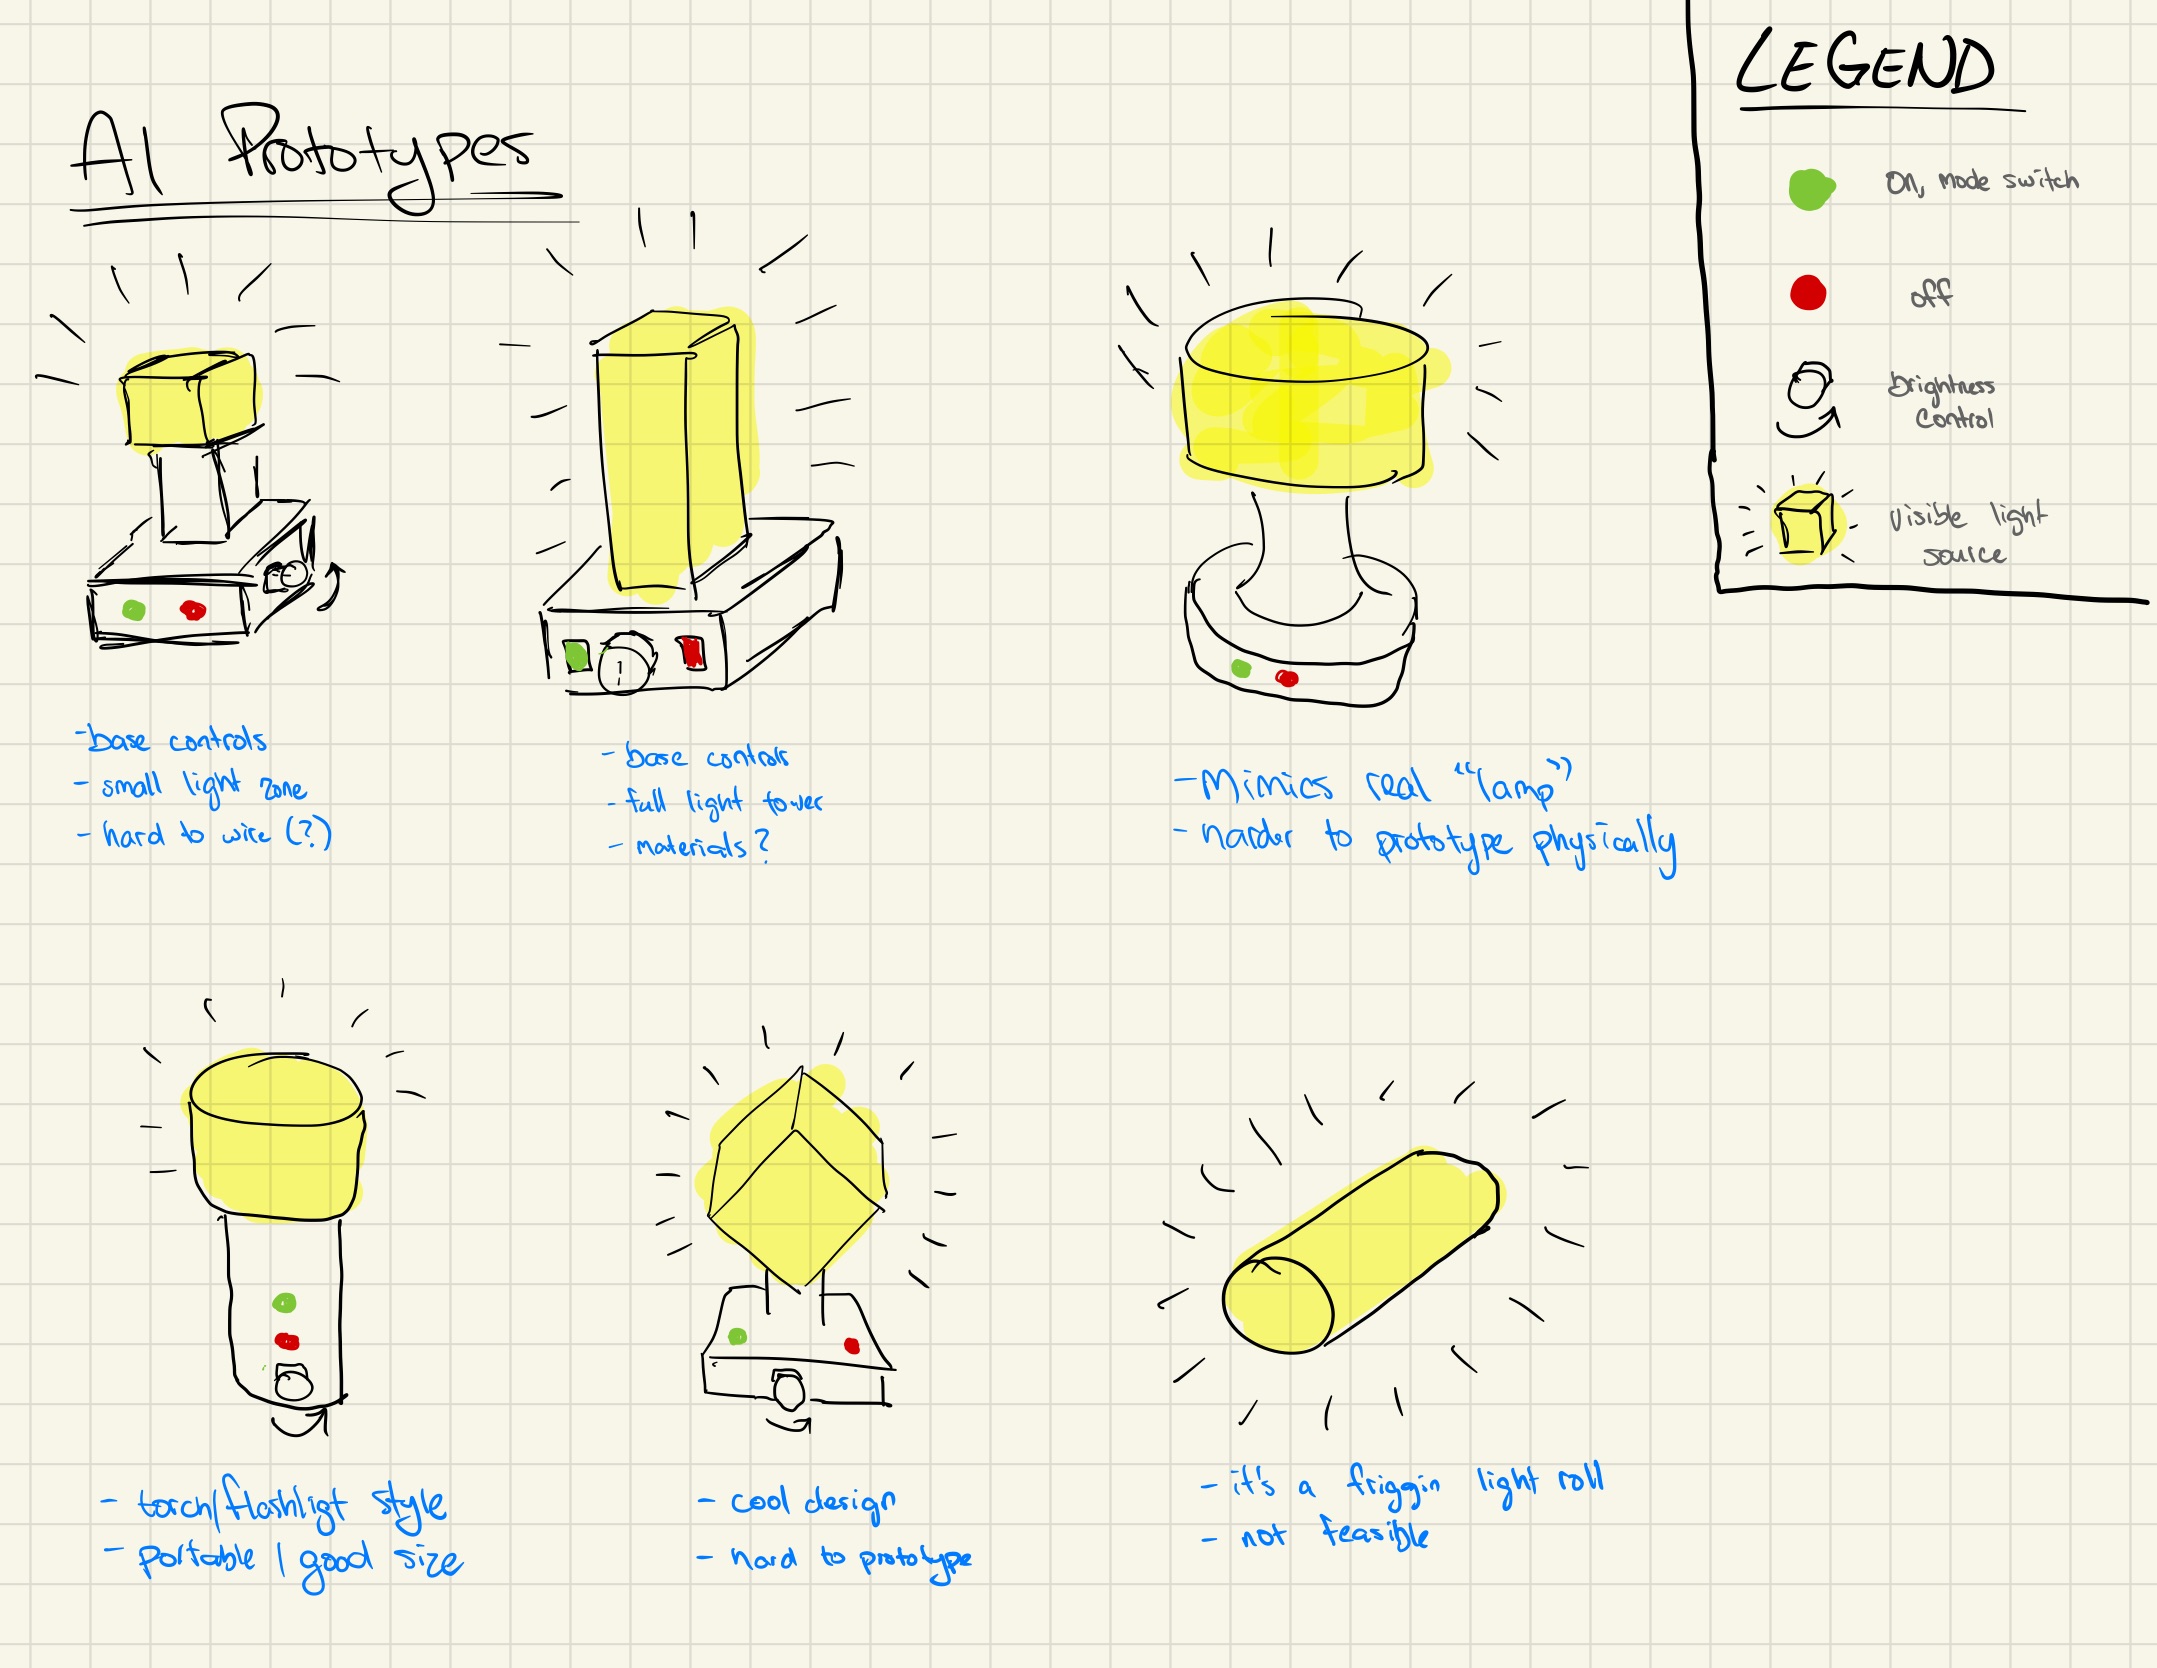 A1 Prototypes
LEGEND
On, mode switch
off
brightness
control
visible light
source
- base controls
- small light zone
- hard to wire (?)
- base controls
- full light tower
- materials?
- Mimics real "lamp"
- harder to prototype physically
- torch/flashligt style
- portable / good size
- cool design
- hard to prototype
- it's a friggin light roll
- not feasible